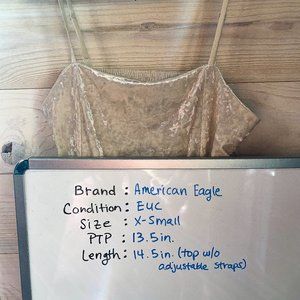 Brand : American Eagle
Condition : EUC
Size : X-Small
PTP : 13.5in.
Length : 14.5in. (top w/o
adjustable straps)